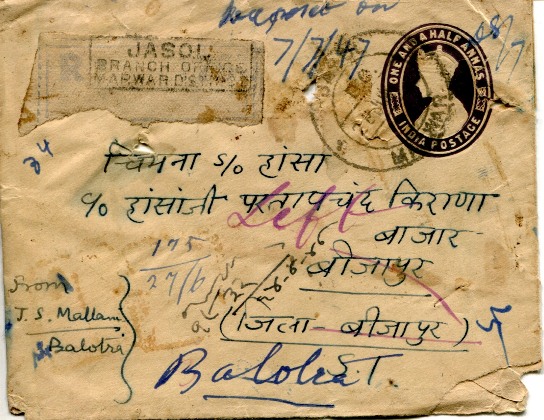 JASOL
BRANCH OFFICE
MARWAR
R
on
7/7/47
ONE AND A HALF ANNAS
INDIA POSTAGE
चिमना S/o हांसा
c/o हांसाजी परतापचंद किराणा
बाजार
Left
बीजापुर
175
27/6
(जिला - बीजापुर)
From
J. S. Mallam
Balotra
Balotra